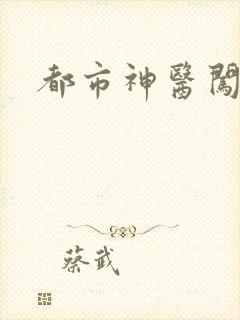 都市神醫闖
蔡武